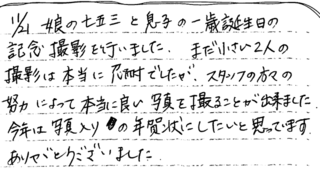 11/21 娘の七五三と息子の一歳誕生日の
記念撮影を行いました。まだ小さい2人の
撮影は本当に大変でしたが、スタッフの方々の
努力によって本当に良い写真を撮ることが出来ました
今年は写真入りの年賀状にしたいと思っています
ありがとうございました